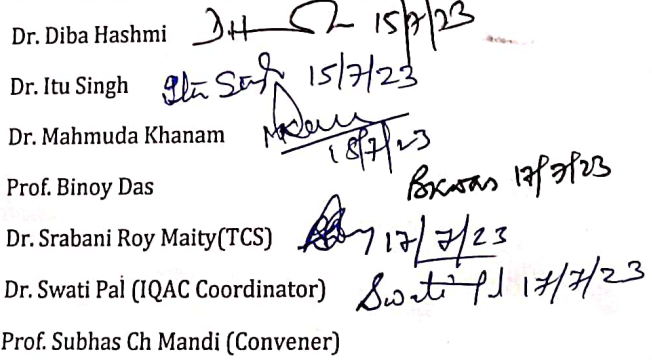 Dr. Diba Hashmi 15/7/23
Dr. Itu Singh Itu Singh 15/7/23
Dr. Mahmuda Khanam 18/7/23
Prof. Binoy Das 17/7/23
Dr. Srabani Roy Maity(TCS) 17/7/23
Dr. Swati Pal (IQAC Coordinator) Swati Pal 17/7/23
Prof. Subhas Ch Mandi (Convener)